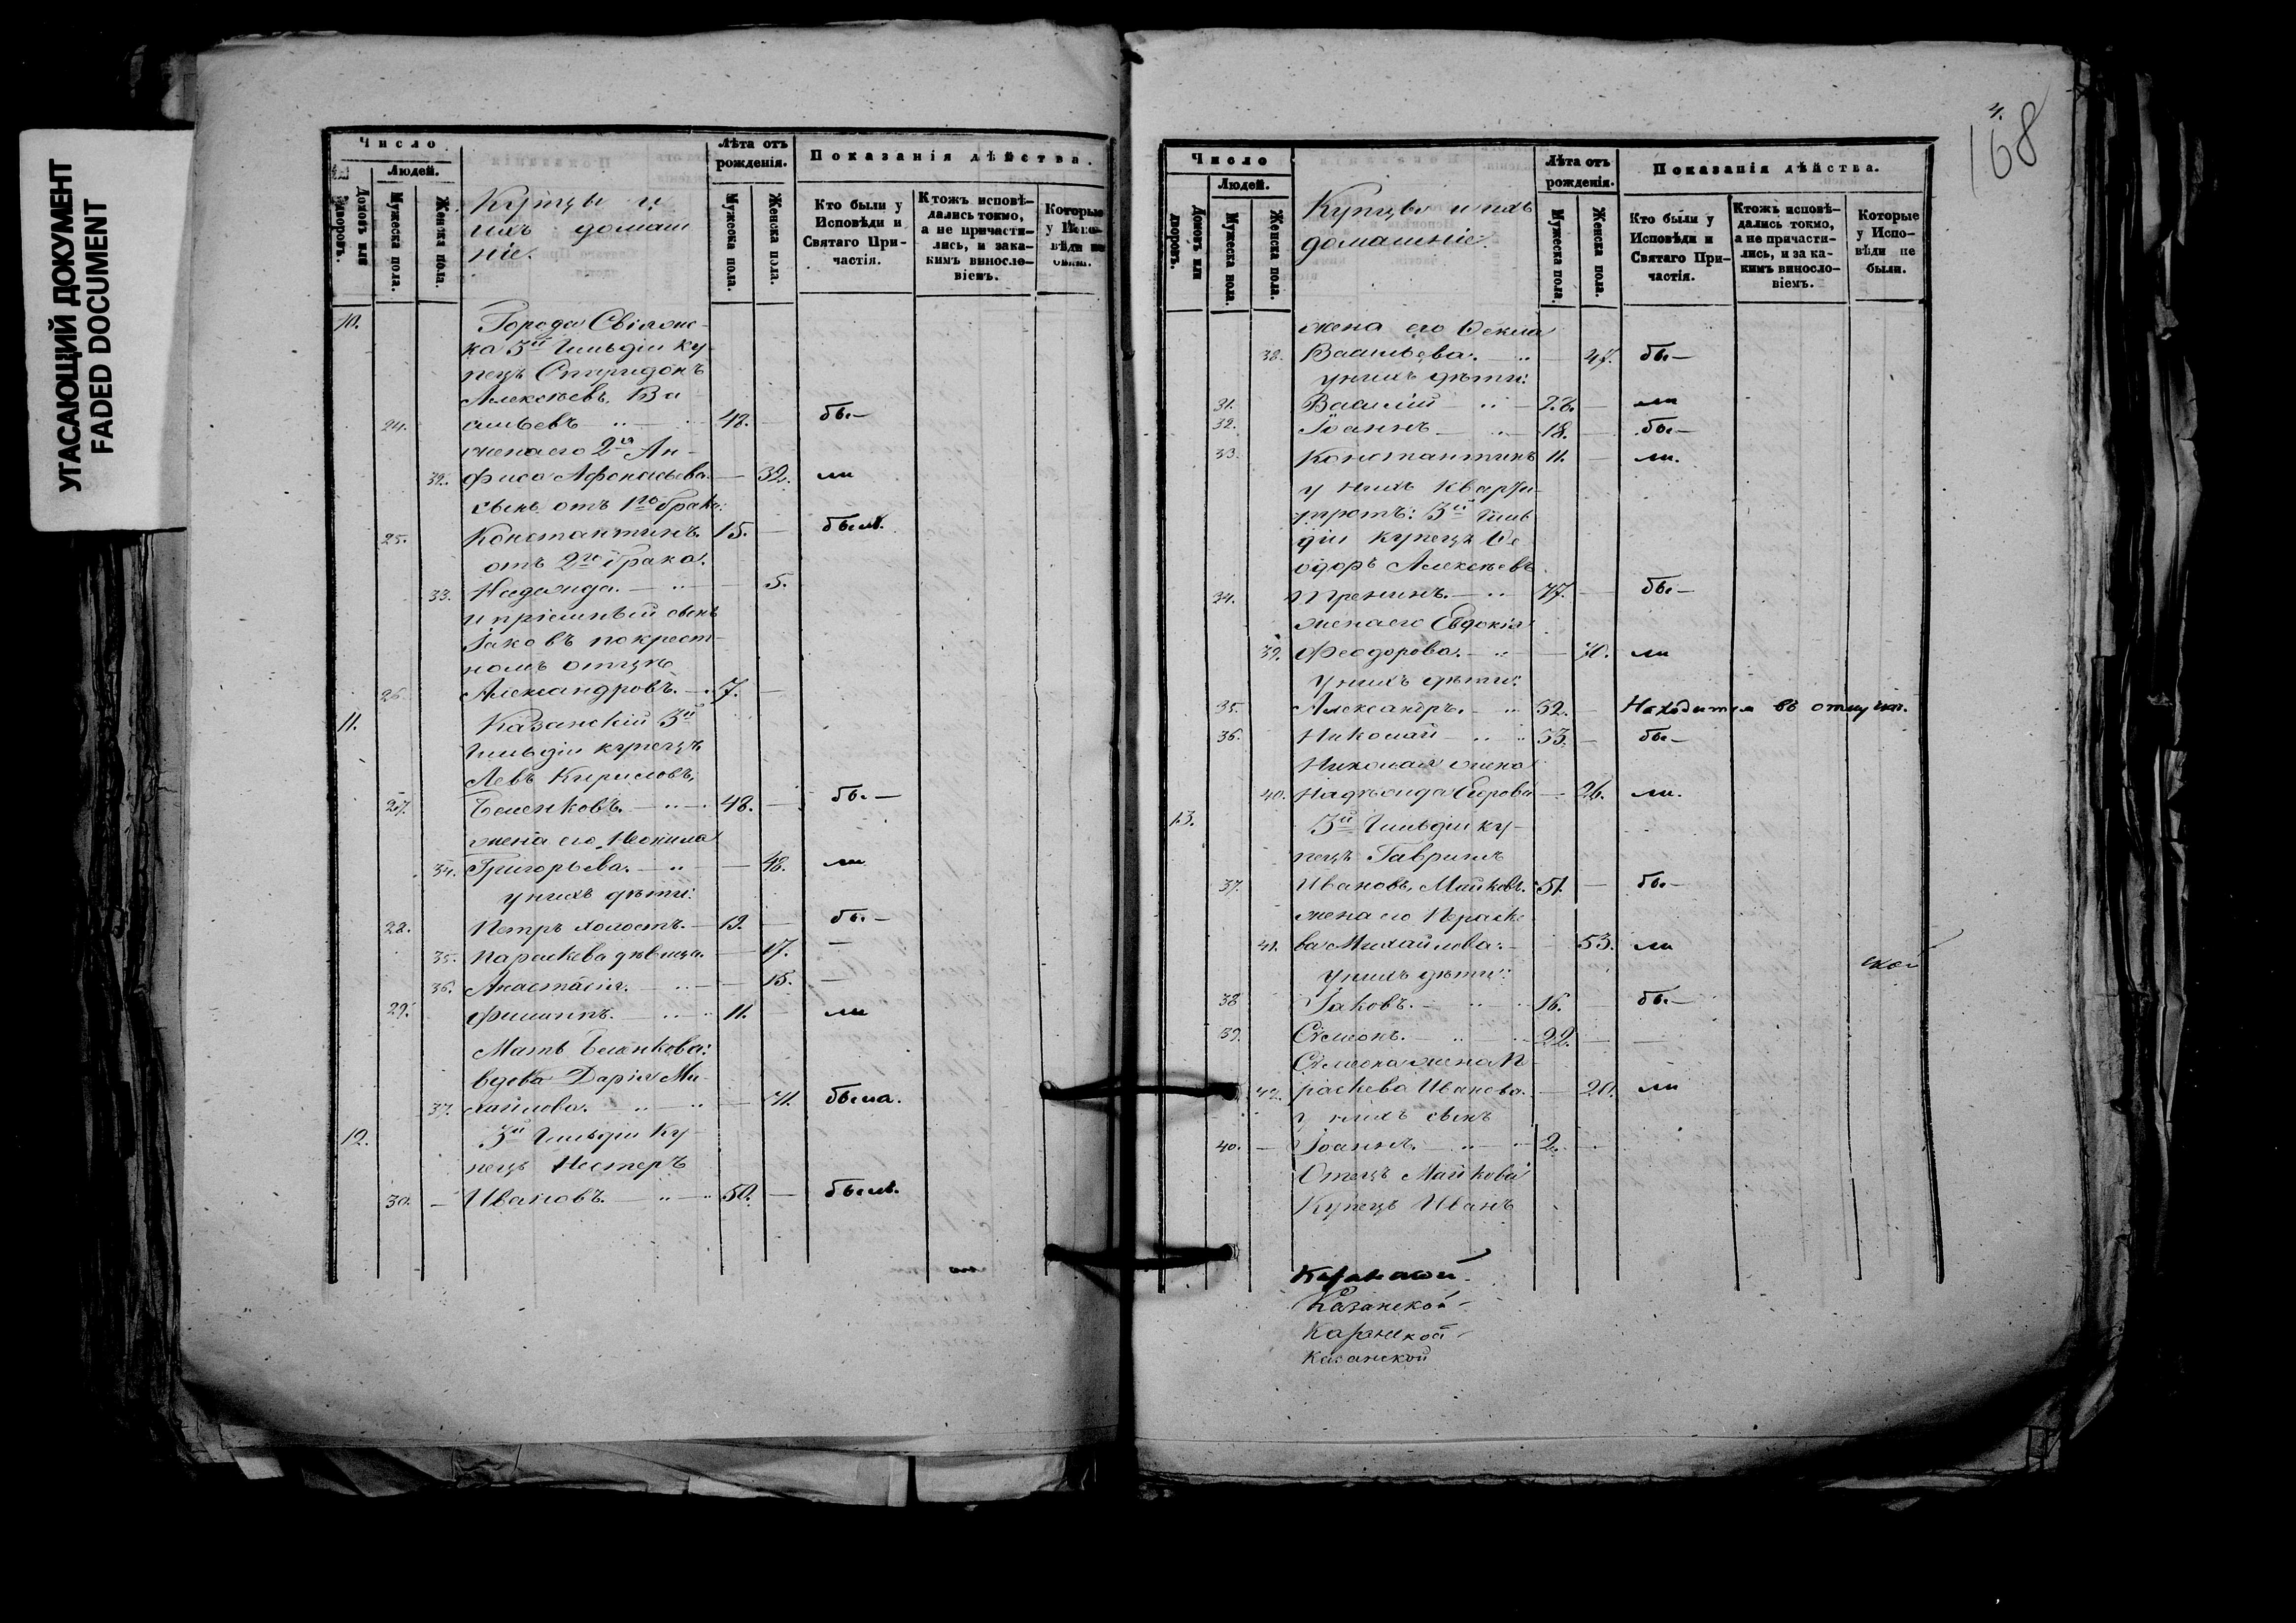 УГАСАЮЩИЙ ДОКУМЕНТ
FADED DOCUMENT
Число
Людей.
Домовъ или дворовъ.
Мужеска пола.
Женска пола.
Купцы и
ихъ домаш
ніе.
Лѣта отъ
рожденія.
Мужеска пола.
Женска пола.
Показанія дѣйства.
Кто были у
Исповѣди и
Святаго При-
частія.
Ктожъ исповѣ-
дались токмо,
а не причасти-
лись, и зака-
кимъ виносло-
віемъ.
Которые
у Испо-
вѣди не
были.
10. Города Свіяжс-
ка 3й Гильдіи ку-
пецъ Спиридонъ
Алексѣевъ, Ва
24. сильевъ 48. бы-
жена его 2я Ан-
32. фиса Афонасьева. 32. ли
сынъ отъ 1го брака:
25. Константинъ. 15. былъ.
отъ 2го брака.
33. Надежда. 5.
и пріемный сынъ
Іаковъ по крест-
номъ отцѣ
26. Александровъ. 7.
11. Казанскій 3й
Гильдіи купецъ
Левъ Кириловъ,
27. Беленковъ. 48. бы-
жена его Неонила
34. Григорьева. 48. ли
у нихъ дѣти:
28. Петръ холостъ. 19. бы-
35. Параскева дѣвица. 17. -
36. Анастасія. 15. -
29. Филиппъ. 11. ли
Мать Беленкова:
вдова Дарія Ми-
37. хайлова. 71. была.
12. 3й Гильдіи Ку
пецъ Нестеръ
30. Ивановъ. 50. былъ.
4.
168
Число
Людей.
Домовъ или дворовъ.
Мужеска пола.
Женска пола.
Купцы и ихъ
домашніе.
Лѣта отъ
рожденія.
Мужеска пола.
Женска пола.
Показанія дѣйства.
Кто были у
Исповѣди и
Святаго При-
частія.
Ктожъ исповѣ-
дались токмо,
а не причасти-
лись, и за ка-
кимъ виносло-
віемъ.
Которые
у Испо-
вѣди не
были.
жена его Ѳекла
38. Васильева. 47. бы-
у нихъ дѣти:
31. Василій 28. ли
32. Іоаннъ 18. бы-
33. Константинъ 11. ли.
у нихъ кварти-
3й Гиль
діи купецъ Ѳе
одоръ Алексѣевъ
34. 77. бы-
жена его Евдокія
39. Феодорова. 70. ли
у нихъ дѣти:
35. Александръ. 32. Находится въ отлучкѣ.
36. Николай 33. бы-
Николая жена
40. Надежда Егорова 26. ли.
13. 3й Гильдіи ку-
пецъ Гавріилъ
37. Ивановъ, Майковъ. 51. бы-
жена его Параске
41. ва Михайлова. 53. ли
ской
у нихъ дѣти:
38. Іаковъ. 16. бы-
39. Сѵмеонъ. 22. -
Сѵмеона жена П
42. раскева Иванова. 20. ли
у нихъ сынъ
40. Іоаннъ. 2.
Отецъ Майкова
Купецъ Иванъ
Казанской
Казанской
Казанской
Казанской